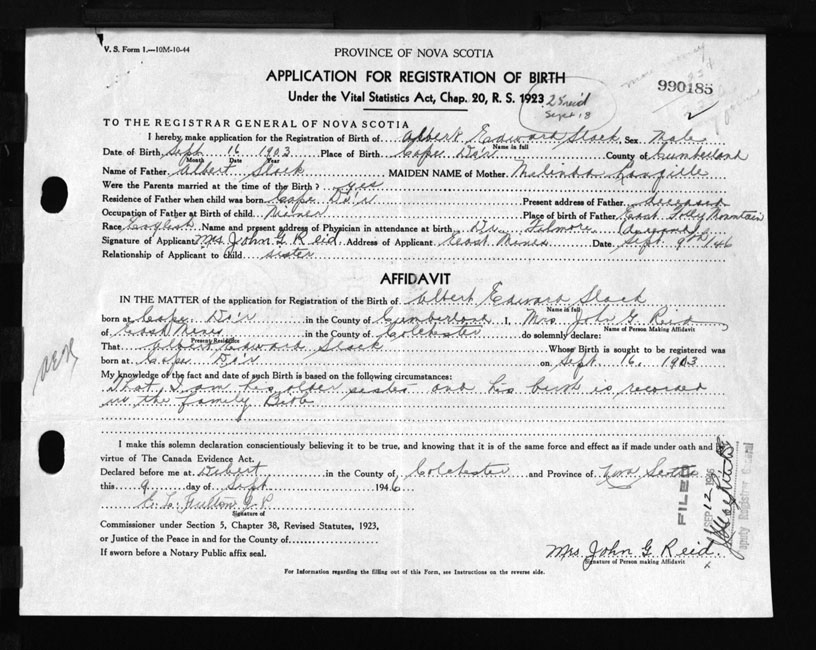 V. S. Form 1.—10M-10-44
PROVINCE OF NOVA SCOTIA
APPLICATION FOR REGISTRATION OF BIRTH
990185
Under the Vital Statistics Act, Chap. 20, R. S. 1923
Sept 18
TO THE REGISTRAR GENERAL OF NOVA SCOTIA
I hereby make application for the Registration of Birth of Albert Edward Slack Sex Male
Name in full
Date of Birth Sept 16 1903 Place of Birth Cape Da'r County of Cumberland
Month Date Year
Name of Father Albert Slack MAIDEN NAME of Mother Melinda Langille
Were the Parents married at the time of the Birth? yes
Residence of Father when child was born Cape Da'r Present address of Father deceased
Occupation of Father at Birth of child Miner Place of birth of Father East Folly Mountain
Race English Name and present address of Physician in attendance at birth Dr.
Signature of Applicant Mrs John G Reid Address of Applicant Coal Mines Date Sept. 9th/46
Relationship of Applicant to child sister
AFFIDAVIT
IN THE MATTER of the application for Registration of the Birth of Albert Edward Slack
Name in full
born at Cape Da'r in the County of Cumberland I, Mrs. John G Reid
Name of Person Making Affidavit
of Coal Mines in the County of Colchester do solemnly declare:
Present Residence
That Albert Edward Slack Whose Birth is sought to be registered was
born at Cape Da'r on Sept 16, 1903
My knowledge of the fact and date of such Birth is based on the following circumstances:
That I am his older sister and his birth is recorded
in the family Bible
I make this solemn declaration conscientiously believing it to be true, and knowing that it is of the same force and effect as if made under oath and by
virtue of The Canada Evidence Act.
Declared before me at Debert in the County of Colchester and Province of Nova Scotia
this 9 day of Sept 1946
C. L. Fulton J.P.
Signature of
Commissioner under Section 5, Chapter 38, Revised Statutes, 1923,
or Justice of the Peace in and for the County of
If sworn before a Notary Public affix seal.
Mrs John G Reid
Signature of Person making Affidavit
FILED
SEP 12 1946
Deputy Registrar General
For Information regarding the filling out of this Form, see Instructions on the reverse side.